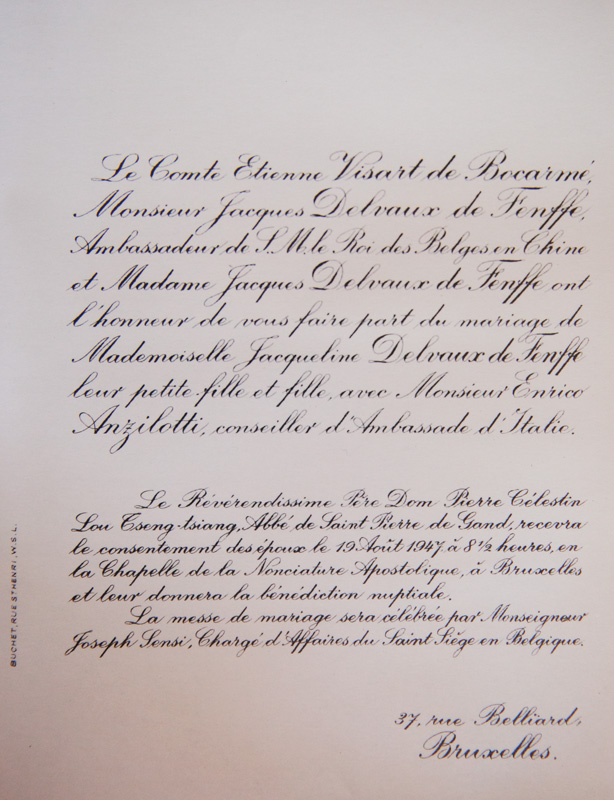 Le Comte Etienne Visart de Bocarmé,
Monsieur Jacques Delvaux de Fenffe,
Ambassadeur de S.M. le Roi des Belges en Chine
et Madame Jacques Delvaux de Fenffe ont
l'honneur de vous faire part du mariage de
Mademoiselle Jacqueline Delvaux de Fenffe
leur petite-fille et fille, avec Monsieur Enrico
Anzilotti, conseiller d'Ambassade d'Italie.
Le Révérendissime Père Dom Pierre Célestin
Lou Tseng-tsiang, Abbé de Saint Pierre de Gand, recevra
le consentement des époux le 19 Août 1947, à 8 1/2 heures, en
la Chapelle de la Nonciature Apostolique, à Bruxelles
et leur donnera la bénédiction nuptiale.
La messe de mariage sera célébrée par Monseigneur
Joseph Sensi, Chargé d'Affaires du Saint Siège en Belgique.
37, rue Belliard,
Bruxelles.
BUCHET, RUE ST HENRI, W.S.L.